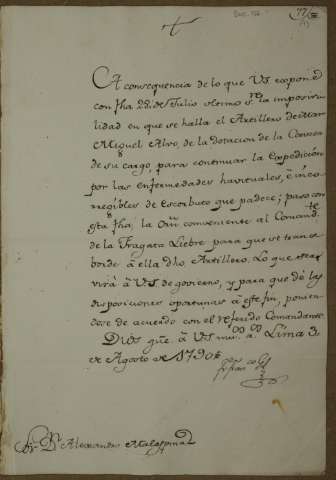 A consequencia de lo que VS. expone
con fha 22 de Julio ultimo sre. la imposivi-
lidad en que se halla el Artillero de Mar
Miguel Alvo, de la dotacion de la Corveta
de su cargo, para continuar la Expedicion
por las enfermedades havituales, è inco-
rregibles de Escorbuto que padece; paso con
esta fha. la Orn. conveniente al Comandte.
de la Fragata Liebre para que se trans-
borde à ella dho. Artillero. Lo que
virà à VS. de govierno, y para que dè las
disposiciones oportunas à este fin, ponien-
dose de acuerdo con el referido Comandante
Dios gue. à VS. ms. as. Lima 3
de Agosto de 1790
Sr. Dn. Alexandro Malaspina